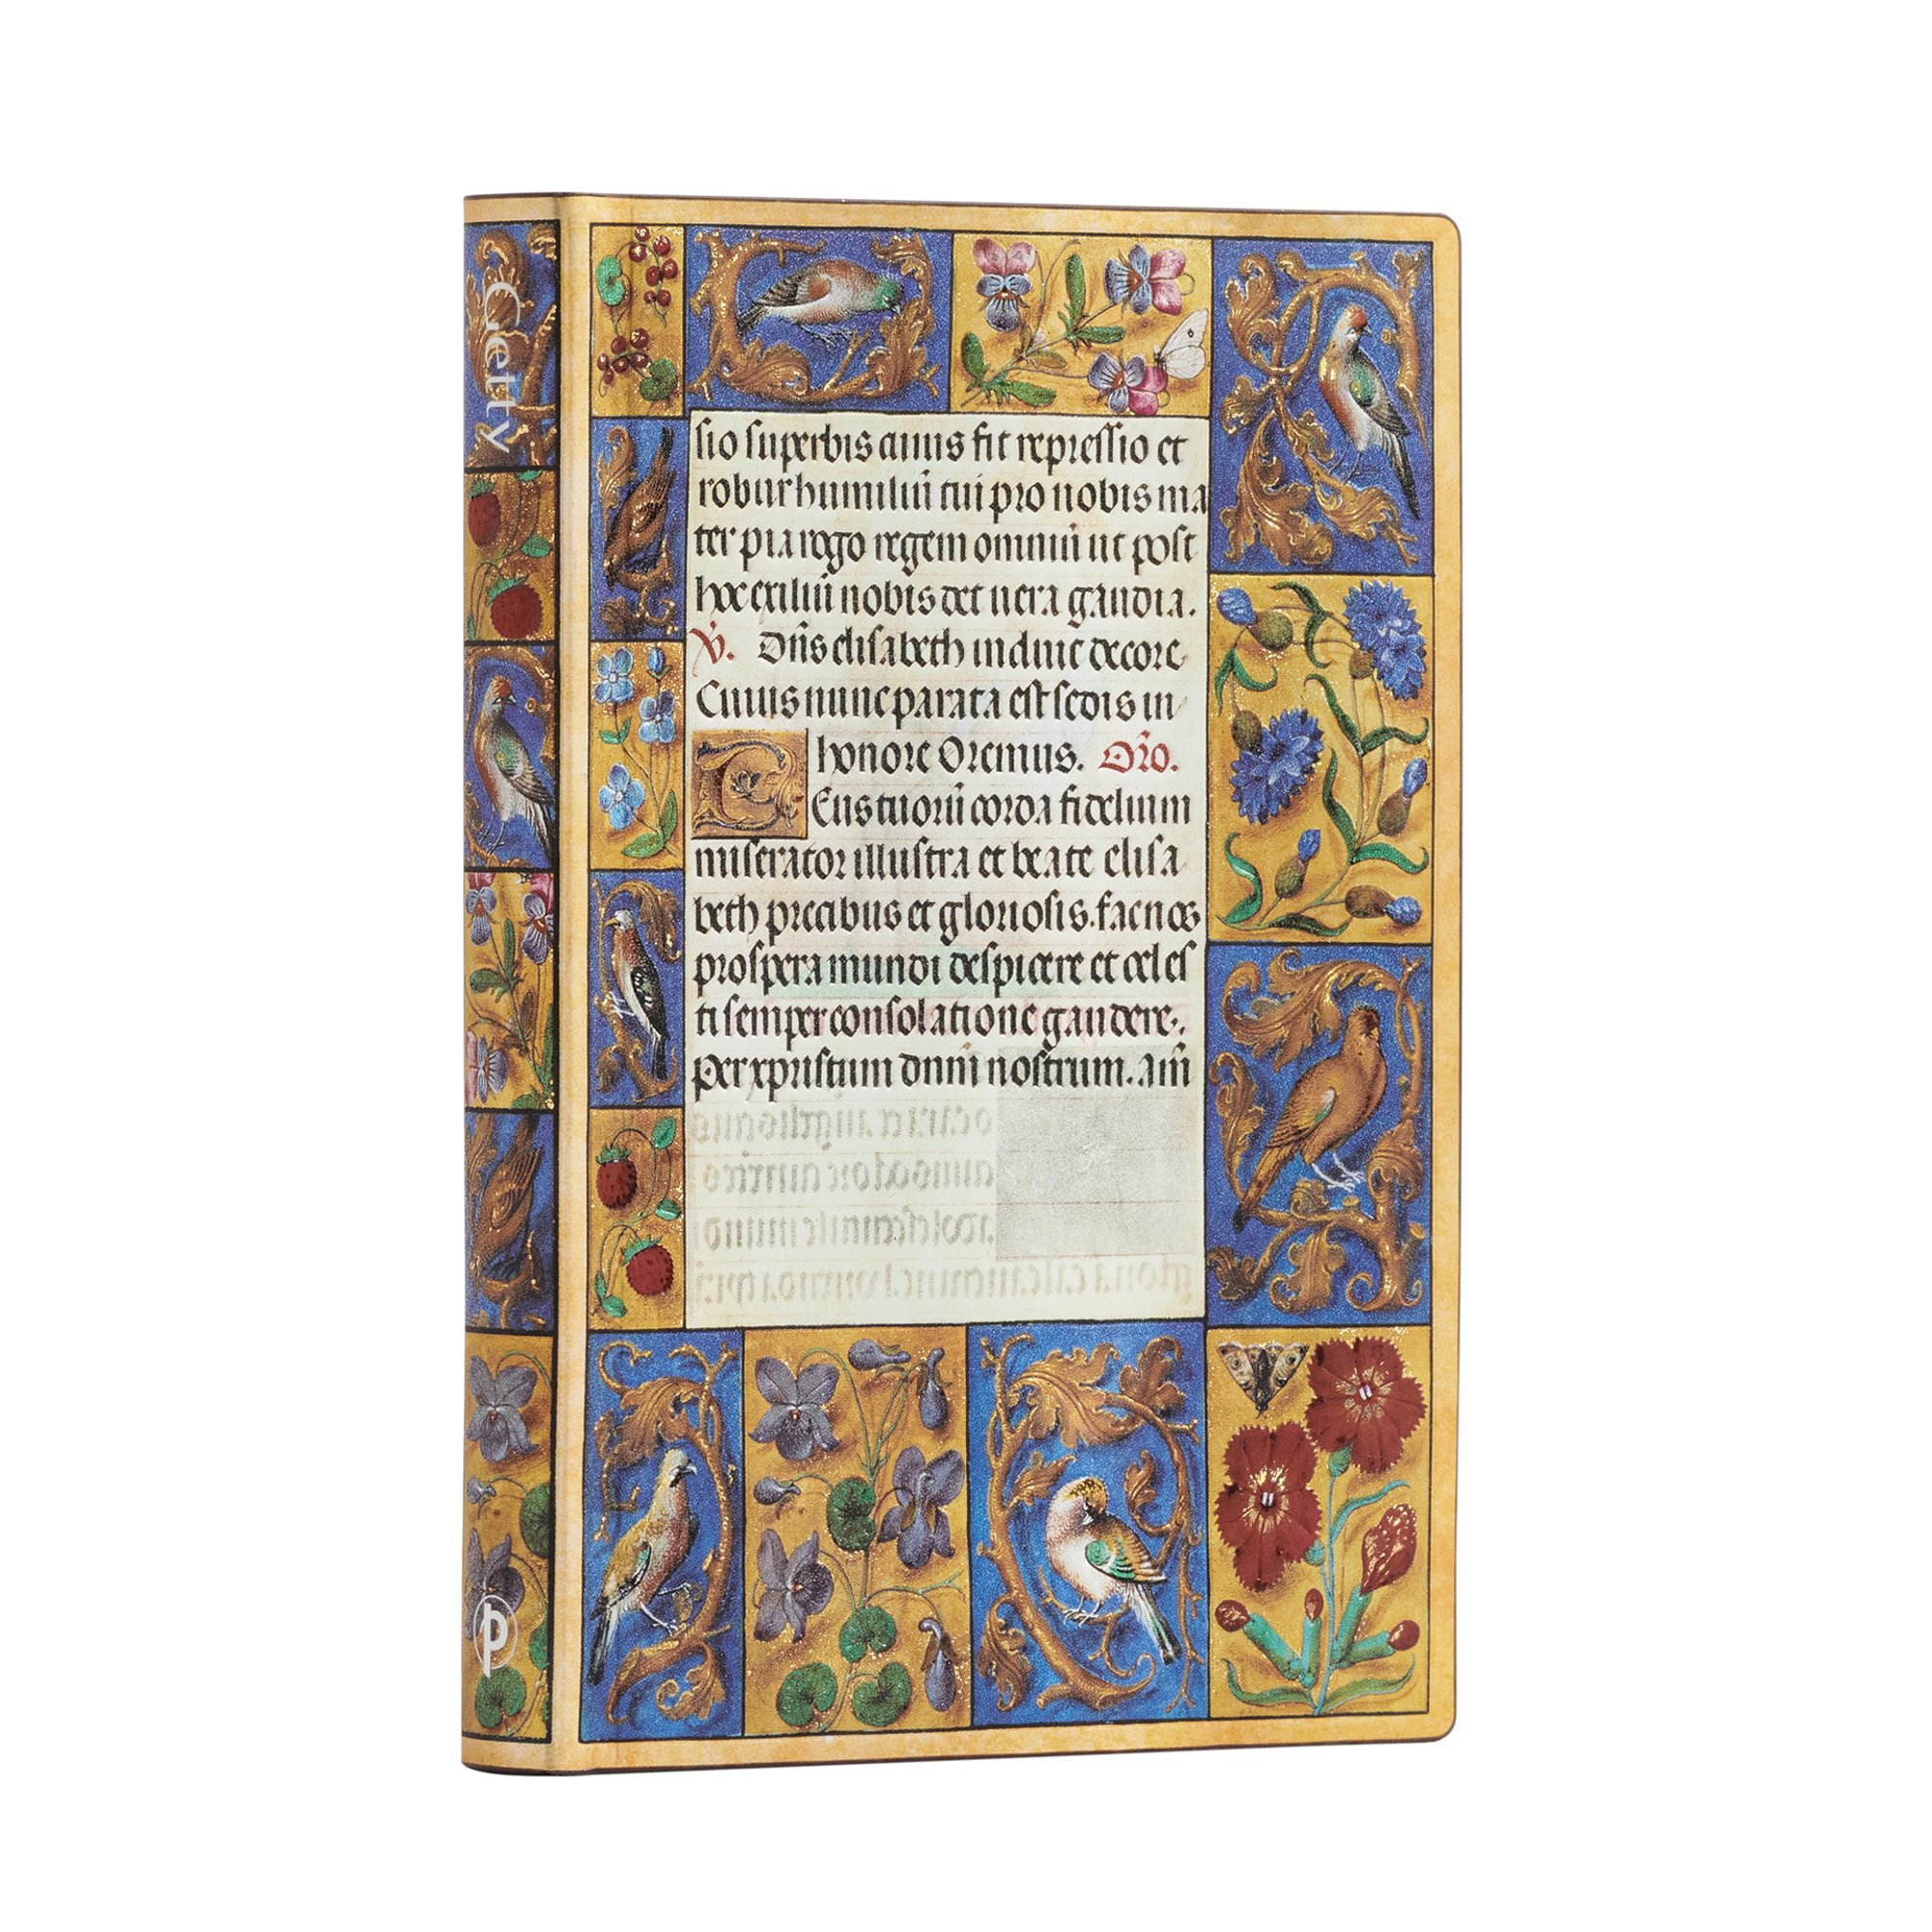 Getty
sio superbis cuius fit repressio et
robur humiliū tui pro nobis ma
ter pia rogo regem omniū ut post
hoc exiliū nobis det uera gaudia.
V. Dn̄s elisabeth induit decore
Cuius nunc parata est sedis in
honore Oremus. Or̄o.
Deus tuorū corda fidelium
miserator illustra et beate elisa
beth precibus et gloriosis. fac nos
prospera mundi despicere et celes
ti semper consolatione gaudere.
Per xpristum dnm̄ nostrum. am̄